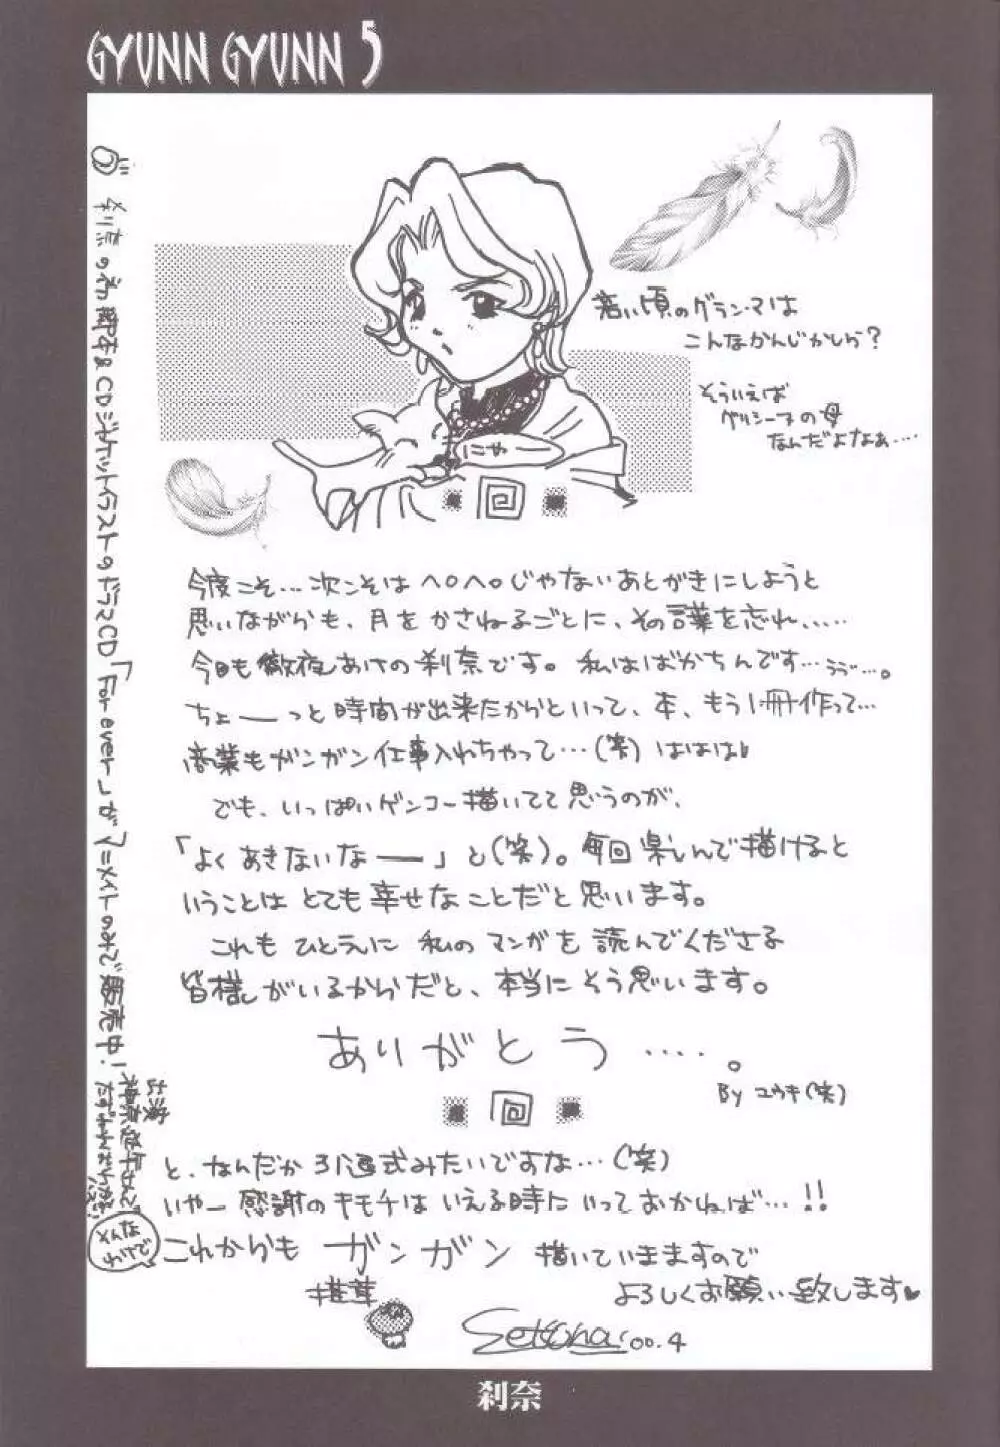 GYUNN GYUNN 5
若い頃のグラン・マは
こんなかんじかしら?
そういえば
グリシーヌの母
なんだよなぁ‥‥
にゃー
今度こそ…次こそはヘロヘロじゃないあとがきにしようと
思いながらも、月をかさねるごとに、その言葉を忘れ、‥‥
今日も徹夜あけの刹奈です。私はばかちんです…うぅ…。
ちょーっと時間が出来たからといって、本、もう1冊作って…
商業もガンガン仕事入れちゃって…(笑)ははは
でも、いっぱいゲンコー描いてて思うのが、
「よくあきないなー」と(笑)。毎回楽しんで描けると
いうことはとても幸せなことだと思います。
これもひとえに私のマンガを読んでくださる
皆様がいるからだと、本当にそう思います。
ありがとう‥‥。
By ユウキ(笑)
と、なんだか引退式みたいですな…(笑)
いやー感謝のキモチはいえる時にいっておかねば…!!
これからもガンガン描いていきますので
よろしくお願い致します♥
椎茸
Setsuna '00.4
刹奈の初脚本&CDジャケットイラストのドラマCD「For ever」がアニメイトのみで販売中!
刹奈